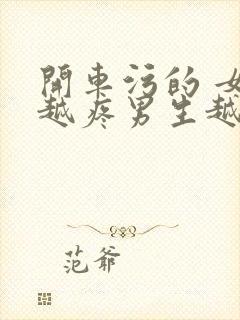 開車污的 女
越疼男生越
范爷